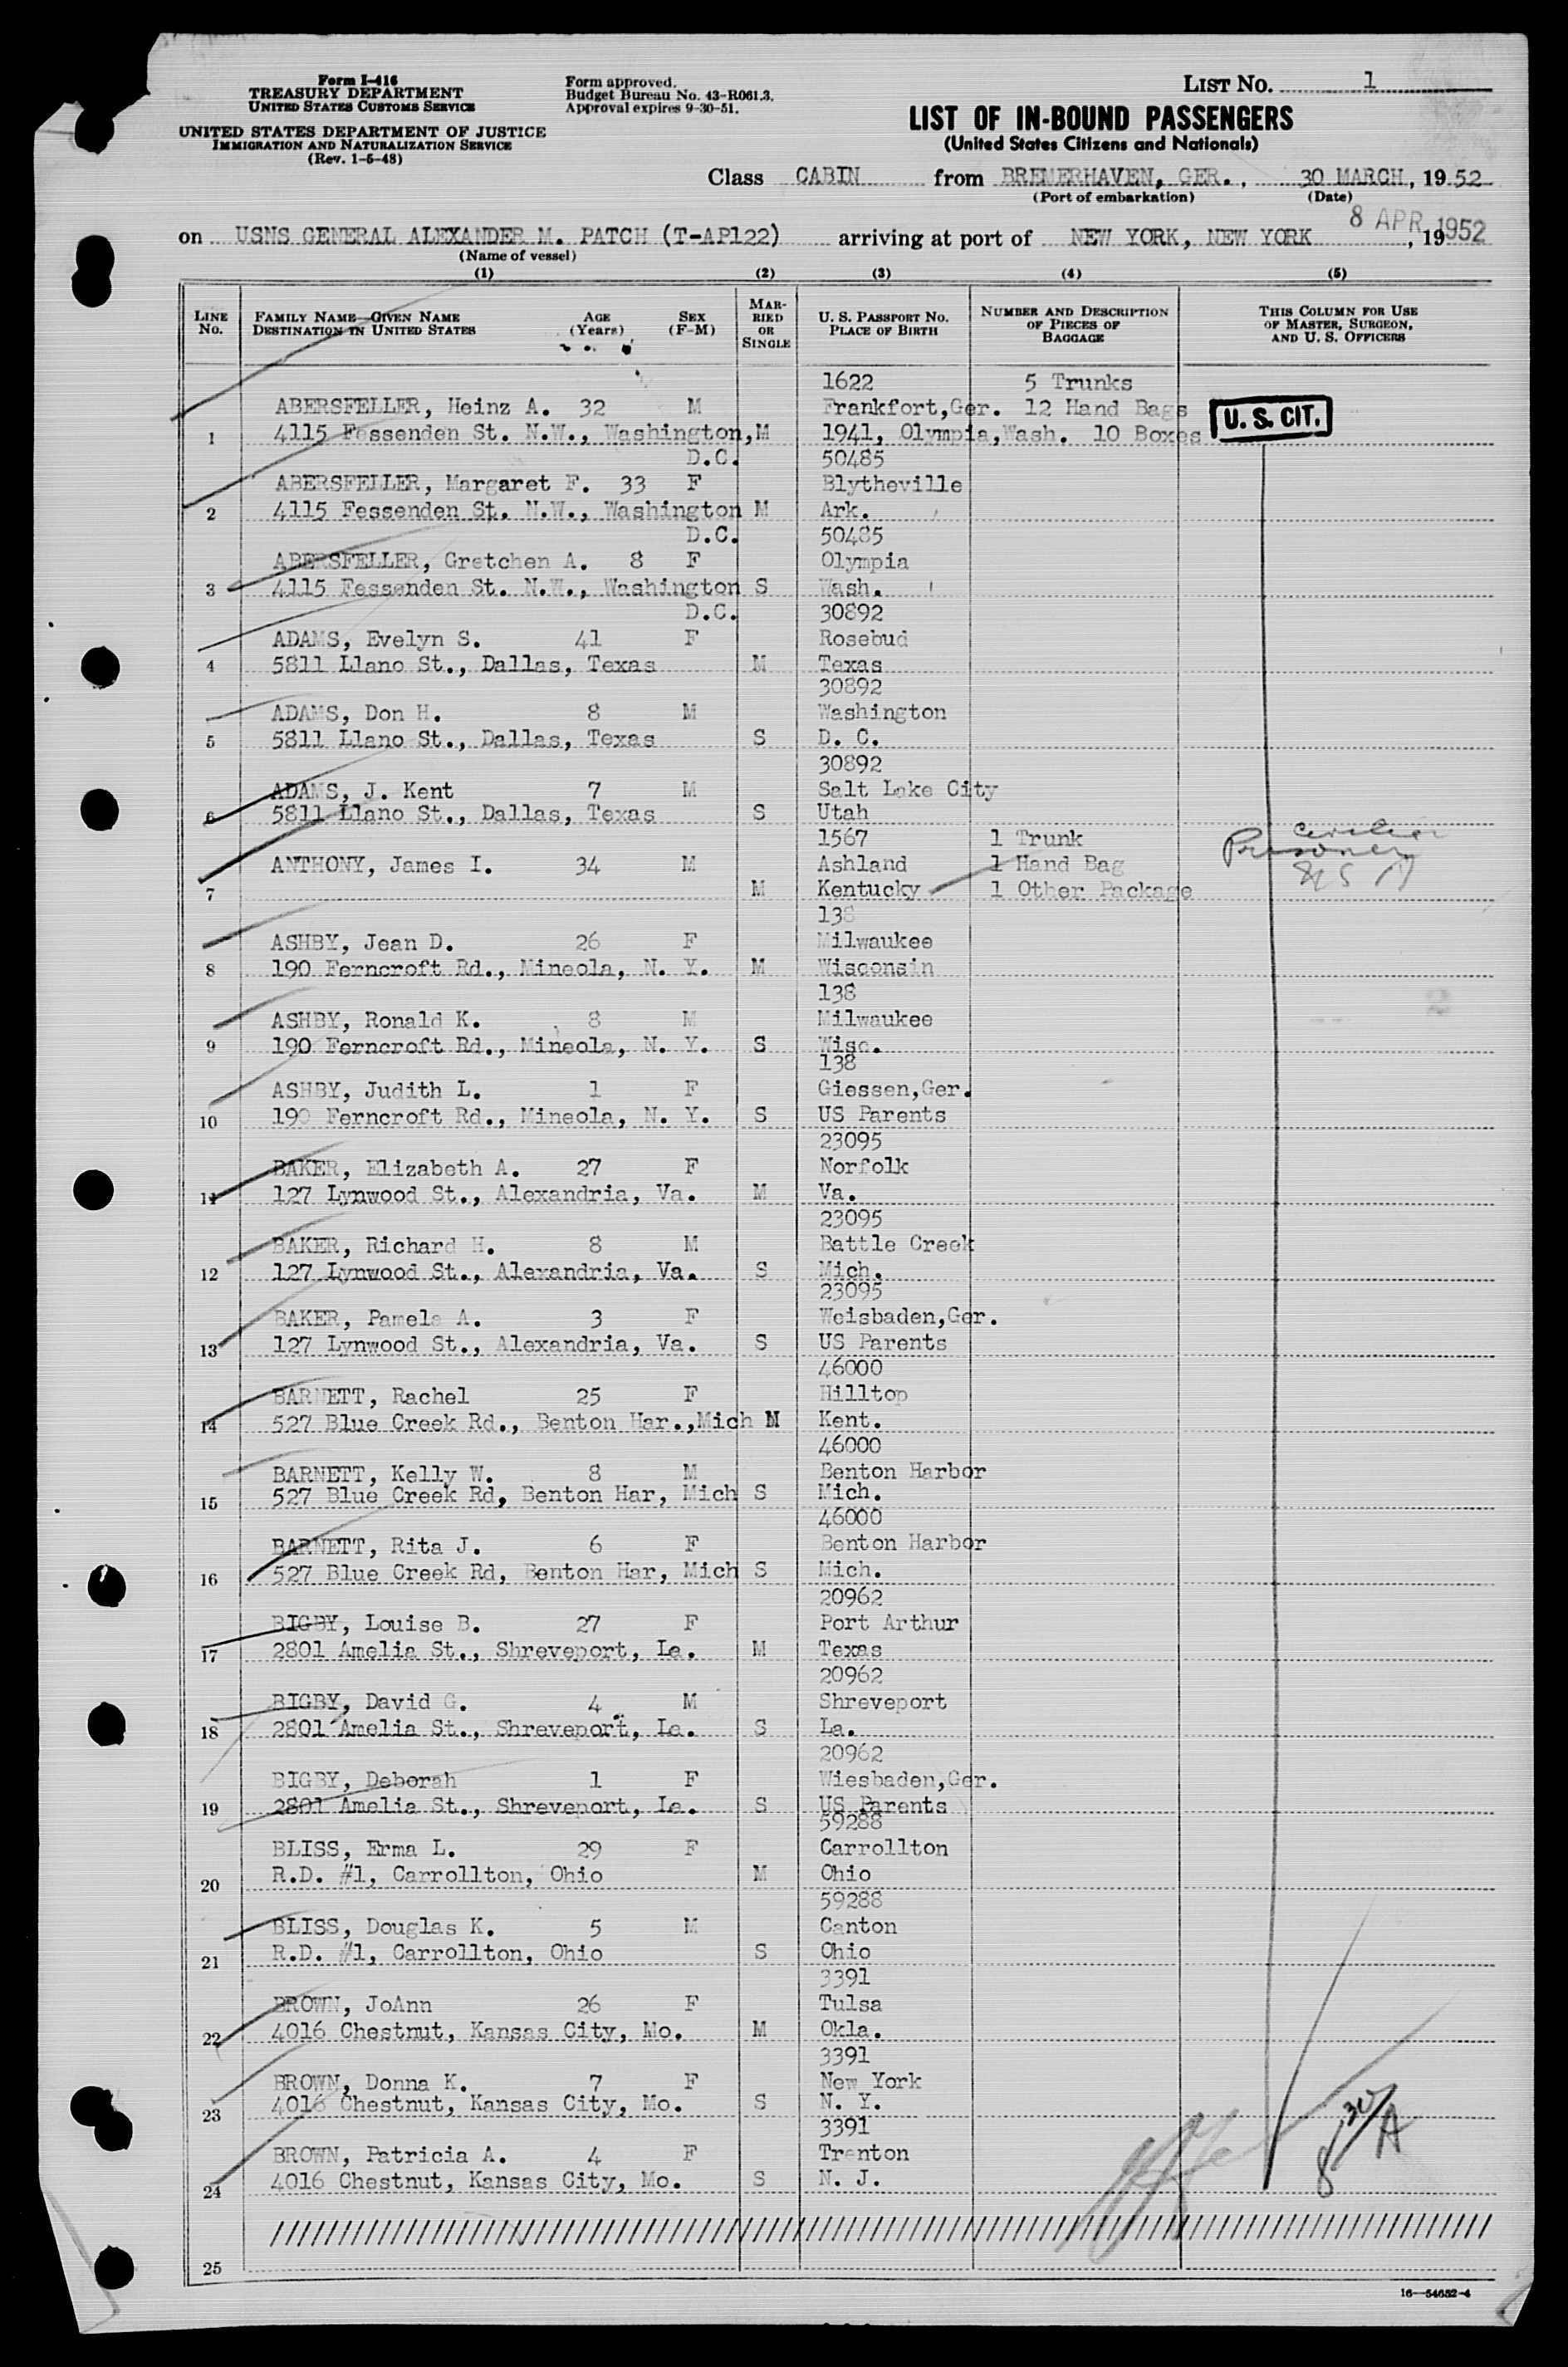 Form I-416
TREASURY DEPARTMENT
UNITED STATES CUSTOMS SERVICE
UNITED STATES DEPARTMENT OF JUSTICE
IMMIGRATION AND NATURALIZATION SERVICE
(Rev. 1-5-48)
Form approved.
Budget Bureau No. 43-R061.3.
Approval expires 9-30-51.
LIST NO. 1
LIST OF IN-BOUND PASSENGERS
(United States Citizens and Nationals)
Class CABIN from BREMERHAVEN, GER., 30 MARCH, 19 52
(Port of embarkation) (Date)
on USNS GENERAL ALEXANDER M. PATCH (T-AP122) arriving at port of NEW YORK, NEW YORK 8 APR 1952, 19
(Name of vessel)
(1) (2) (3) (4) (5)
LINE NO.
FAMILY NAME—GIVEN NAME AGE SEX
DESTINATION IN UNITED STATES (Years) (F-M)
MARRIED OR SINGLE
U. S. PASSPORT NO.
PLACE OF BIRTH
NUMBER AND DESCRIPTION OF PIECES OF BAGGAGE
THIS COLUMN FOR USE OF MASTER, SURGEON, AND U. S. OFFICERS
1622 5 Trunks
ABERSFELLER, Heinz A. 32 M Frankfort,Ger. 12 Hand Bags U. S. CIT.
1 4115 Fessenden St. N.W., Washington, M 1941, Olympia,Wash. 10 Boxes
D.C. 50485
ABERSFELLER, Margaret F. 33 F Blytheville
2 4115 Fessenden St. N.W., Washington M Ark.
D.C. 50485
ABERSFELLER, Gretchen A. 8 F Olympia
3 4115 Fessenden St. N.W., Washington S Wash.
D.C. 30892
ADAMS, Evelyn S. 41 F Rosebud
4 5811 Llano St., Dallas, Texas M Texas
30892
ADAMS, Don H. 8 M Washington
5 5811 Llano St., Dallas, Texas S D. C.
30892
ADAMS, J. Kent 7 M Salt Lake City
6 5811 Llano St., Dallas, Texas S Utah
1567 1 Trunk
ANTHONY, James I. 34 M Ashland 1 Hand Bag Prisoner
7 M Kentucky 1 Other Package
138
ASHBY, Jean D. 26 F Milwaukee
8 190 Ferncroft Rd., Mineola, N. Y. M Wisconsin
138
ASHBY, Ronald K. 8 M Milwaukee
9 190 Ferncroft Rd., Mineola, N. Y. S Wisc.
138
ASHBY, Judith L. 1 F Giessen,Ger.
10 190 Ferncroft Rd., Mineola, N. Y. S US Parents
23095
BAKER, Elizabeth A. 27 F Norfolk
11 127 Lynwood St., Alexandria, Va. M Va.
23095
BAKER, Richard H. 8 M Battle Creek
12 127 Lynwood St., Alexandria, Va. S Mich.
23095
BAKER, Pamela A. 3 F Weisbaden,Ger.
13 127 Lynwood St., Alexandria, Va. S US Parents
46000
BARNETT, Rachel 25 F Hilltop
14 527 Blue Creek Rd., Benton Har.,Mich M Kent.
46000
BARNETT, Kelly W. 8 M Benton Harbor
15 527 Blue Creek Rd, Benton Har, Mich S Mich.
46000
BARNETT, Rita J. 6 F Benton Harbor
16 527 Blue Creek Rd, Benton Har, Mich S Mich.
20962
BIGBY, Louise B. 27 F Port Arthur
17 2801 Amelia St., Shreveport, La. M Texas
20962
BIGBY, David G. 4 M Shreveport
18 2801 Amelia St., Shreveport, La. S La.
20962
BIGBY, Deborah 1 F Wiesbaden,Ger.
19 2801 Amelia St., Shreveport, La. S US Parents
59288
BLISS, Erma L. 29 F Carrollton
20 R.D. #1, Carrollton, Ohio M Ohio
59288
BLISS, Douglas K. 5 M Canton
21 R.D. #1, Carrollton, Ohio S Ohio
3391
BROWN, JoAnn 26 F Tulsa
22 4016 Chestnut, Kansas City, Mo. M Okla.
3391
BROWN, Donna K. 7 F New York
23 4016 Chestnut, Kansas City, Mo. S N. Y.
3391
BROWN, Patricia A. 4 F Trenton
24 4016 Chestnut, Kansas City, Mo. S N. J.
25
16—54652-4